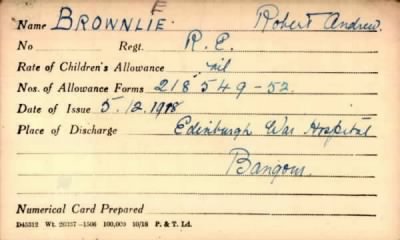 Name BROWNLIE. E Robert Andrew.
No Regt. R. E.
Rate of Children's Allowance nil
Nos. of Allowance Forms 218549-52.
Date of Issue 5.12.1918
Place of Discharge Edinburgh War Hospital
Bangour.
Numerical Card Prepared
D45312 Wt. 26337-1506 100,000 10/18 P. & T. Ld.